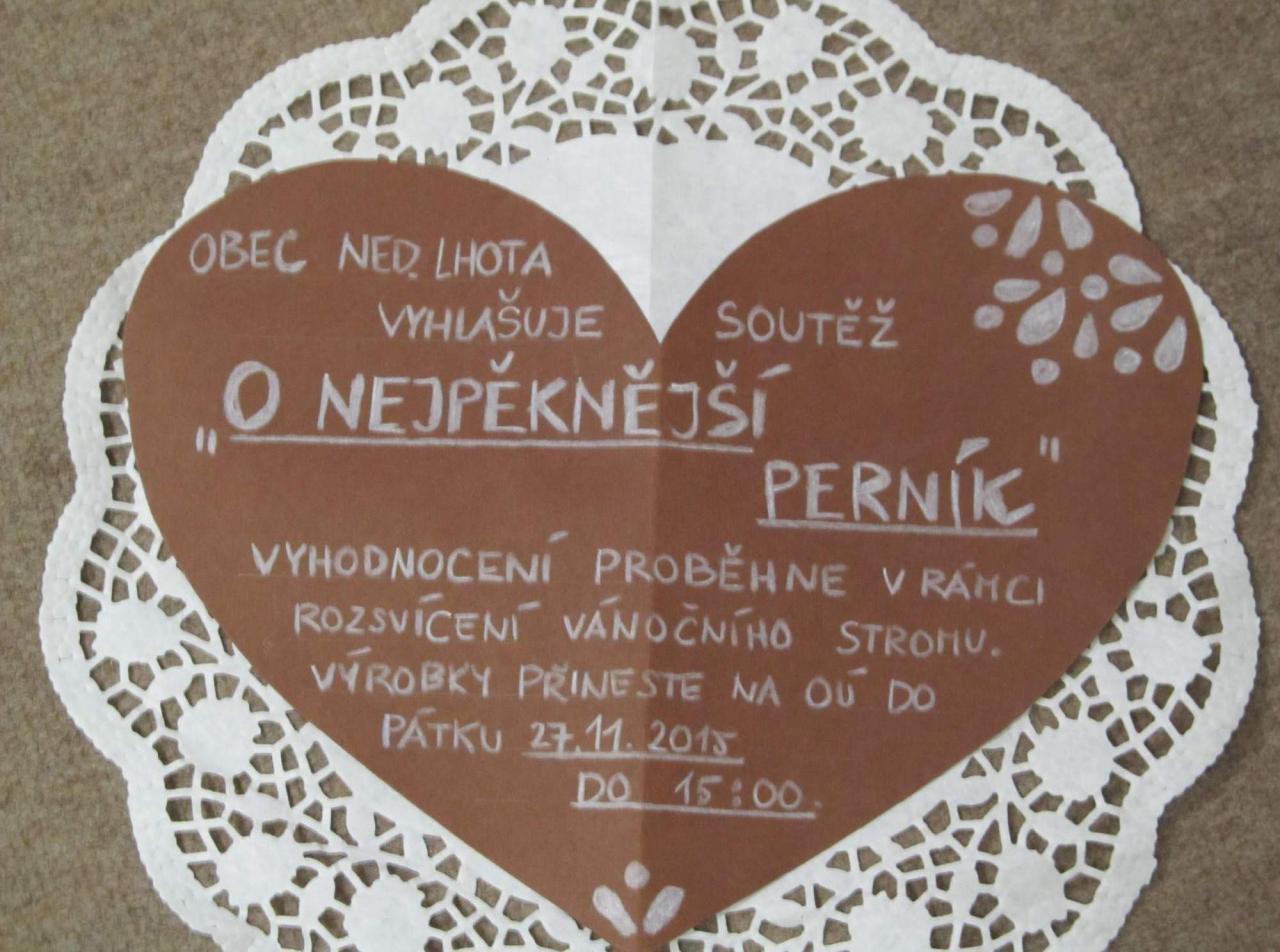 OBEC NED. LHOTA
VYHLAŠUJE SOUTĚŽ
„O NEJPĚKNĚJŠÍ
PERNÍK"
VYHODNOCENÍ PROBĚHNE V RÁMCI
ROZSVÍCENÍ VÁNOČNÍHO STROMU.
VÝROBKY PŘINESTE NA OÚ DO
PÁTKU 27.11.2015
DO 15:00.